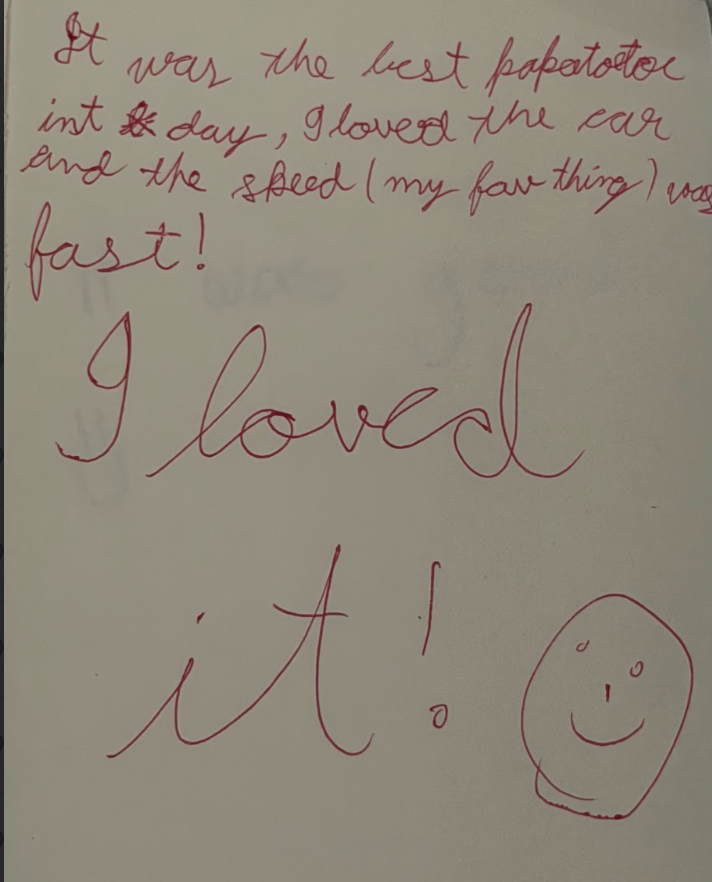 It was the best papatoetoe
int day, I loved the car
and the speed (my fav thing) was
fast!
I loved
it!